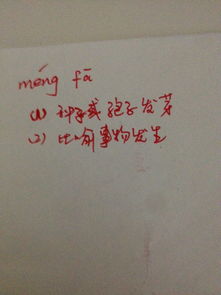 méng fā
(1) 种子或孢子发芽
(2) 比喻事物发生